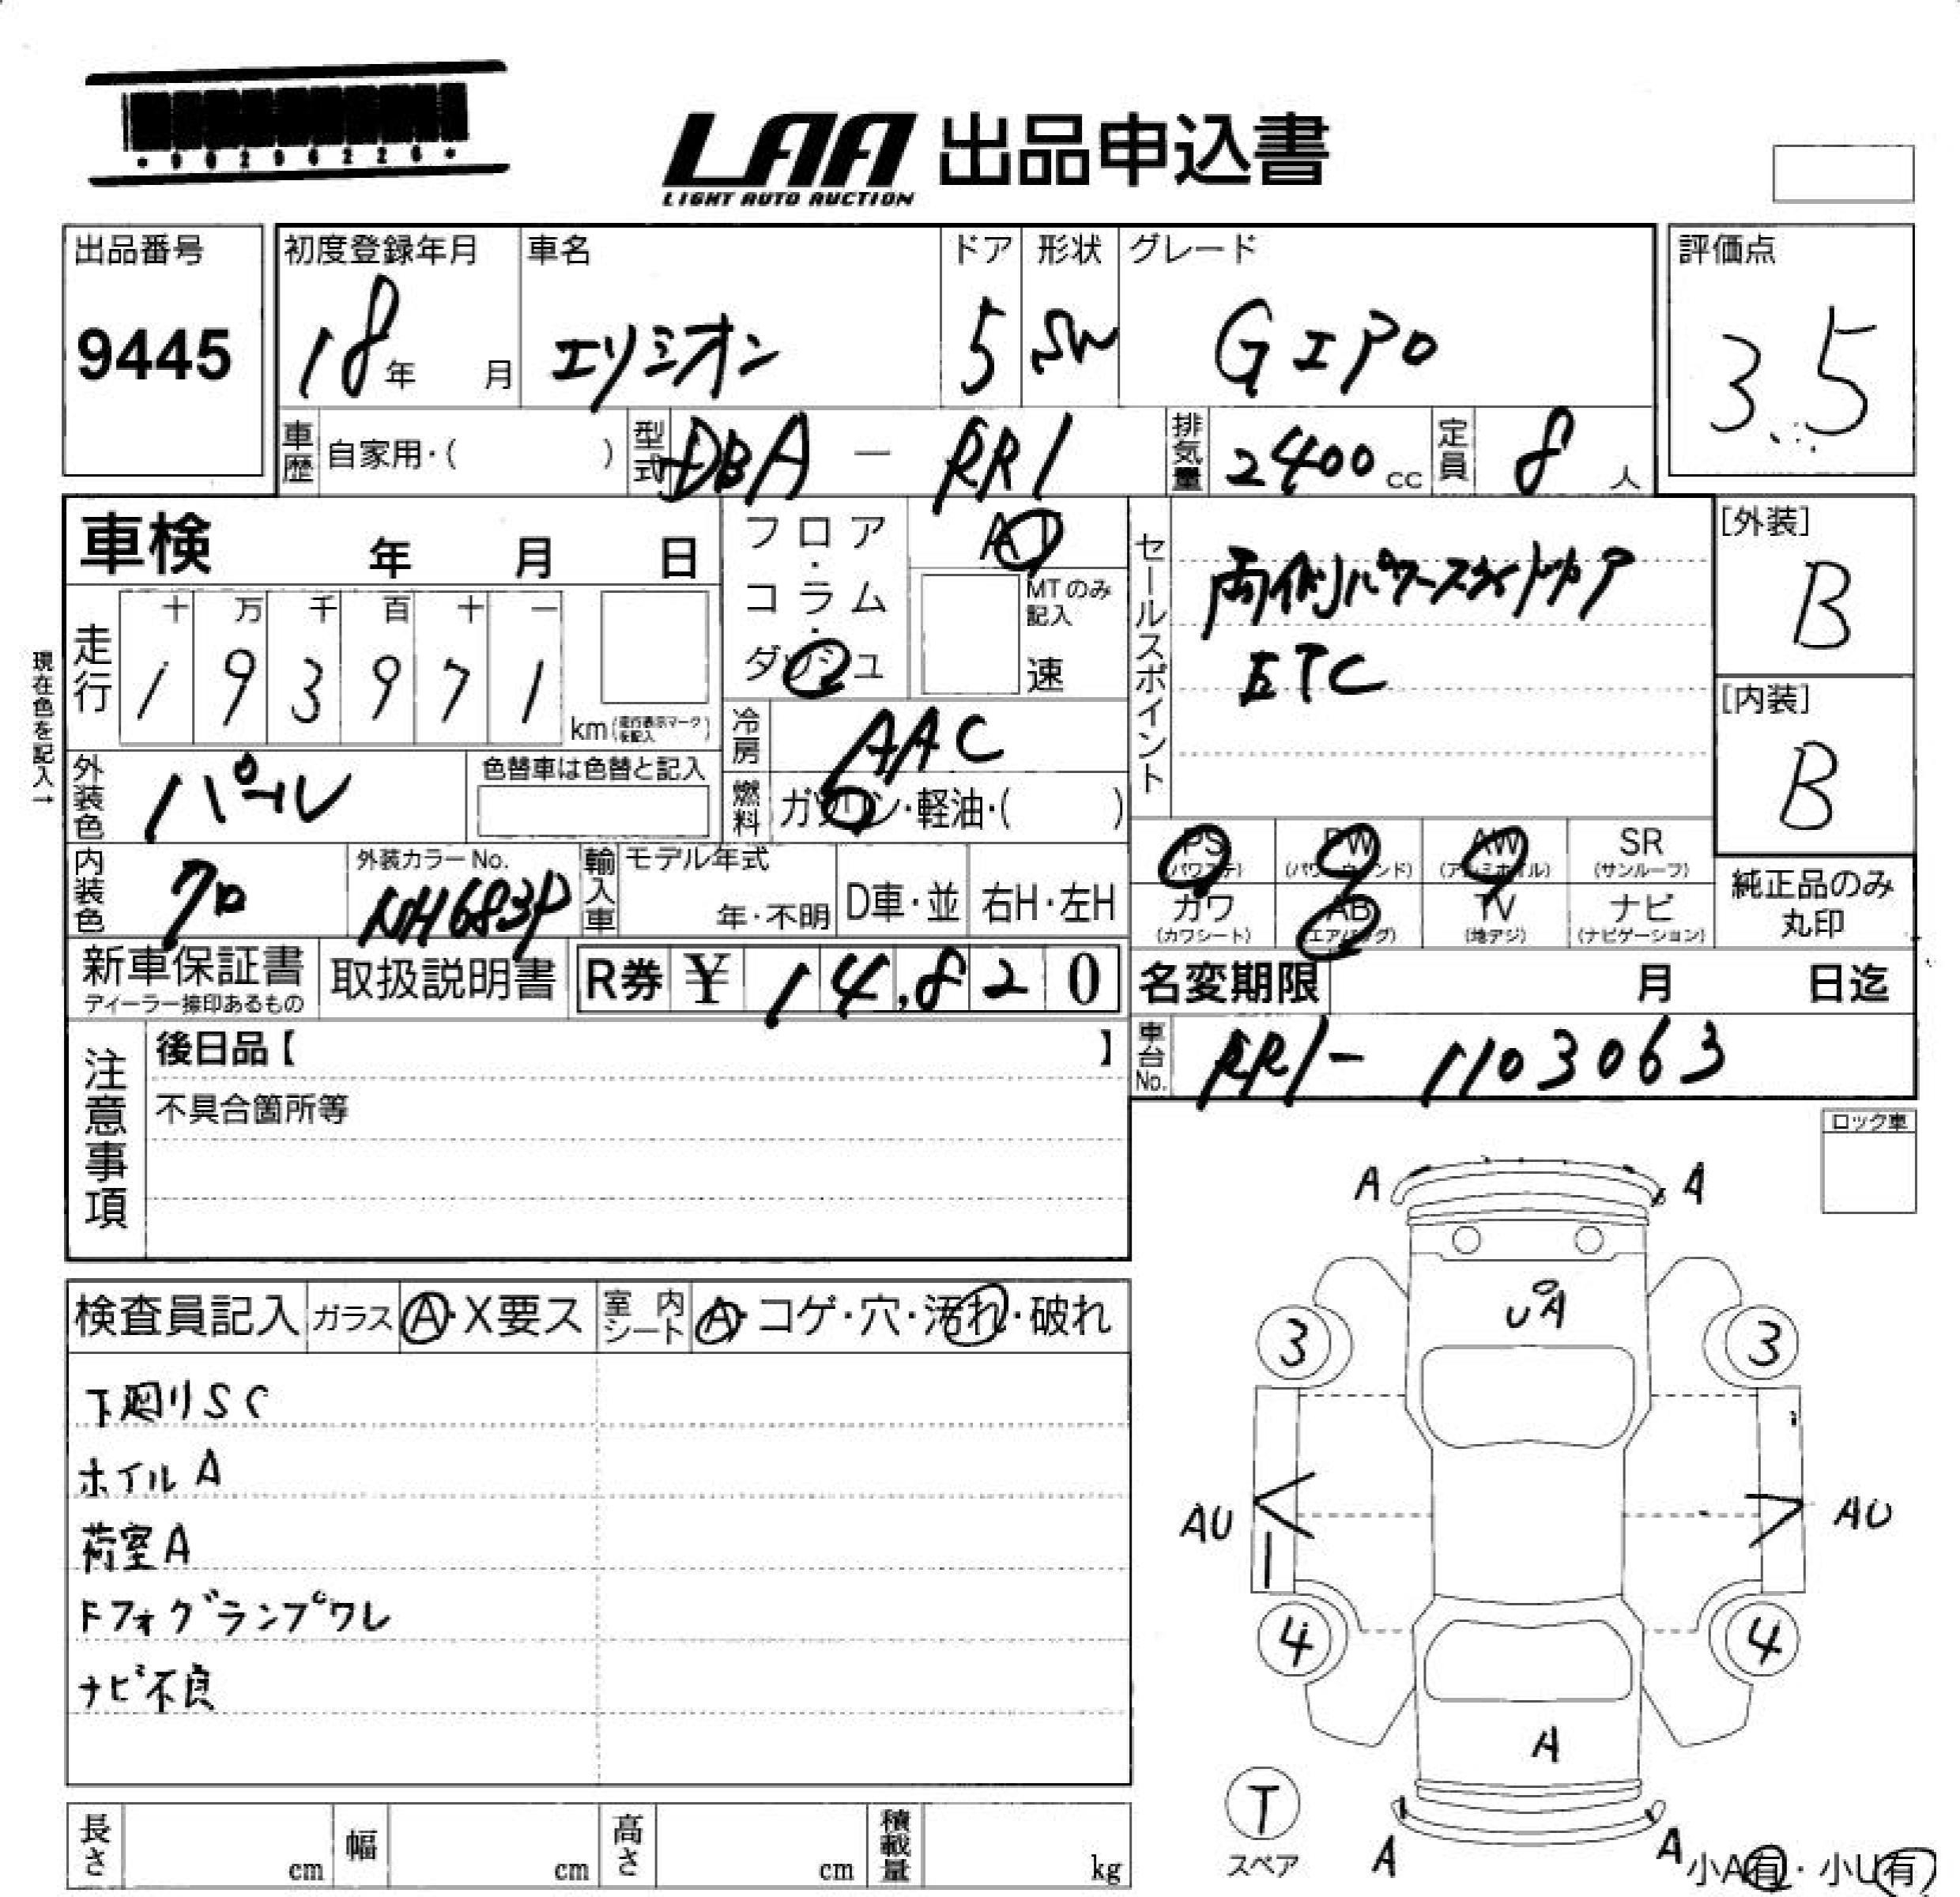 *90296226*
LAA 出品申込書
LIGHT AUTO AUCTION
出品番号 初度登録年月 車名 ドア 形状 グレード 評価点
9445 18年 月 エリシオン 5 SW Gエアロ 3.5
車歴 自家用・( ) 型式 DBA - RR1 排気量 2400 cc 定員 8 人
車検 年 月 日
フロア・コラム・ダッシュ
AT
MTのみ記入
速
セールスポイント
両側パワースライドドア
ETC
[外装]
B
[内装]
B
現在色を記入→
走行 十 万 千 百 十 一
1 9 3 9 7 1 km(走行表示マークを記入)
冷房 AAC
外装色 パール 色替車は色替と記入
燃料 ガソリン・軽油・( )
PS PW AW SR
(パワステ) (パワーウィンド) (アルミホイル) (サンルーフ)
カワ AB TV ナビ
(カワシート) (エアバッグ) (地デジ) (ナビゲーション)
純正品のみ
丸印
内装色 クロ 外装カラーNo. NH683P 輸入車 モデル年式 年・不明 D車・並 右H・左H
新車保証書 取扱説明書 R券 ¥ 14,820 名変期限 月 日迄
ディーラー捺印あるもの
車台No. RR1-1103063
注意事項
後日品【 】
不具合箇所等
ロック車
検査員記入 ガラス A・X要ス 室内シート A・コゲ・穴・汚れ・破れ
下廻りSC
ホイルA
荷室A
Fフォグランプワレ
ナビ不良
A A
UA
3 3
AU AU
4 4
A
T
スペア
A A
小A有・小U有
長さ cm 幅 cm 高さ cm 積載量 kg